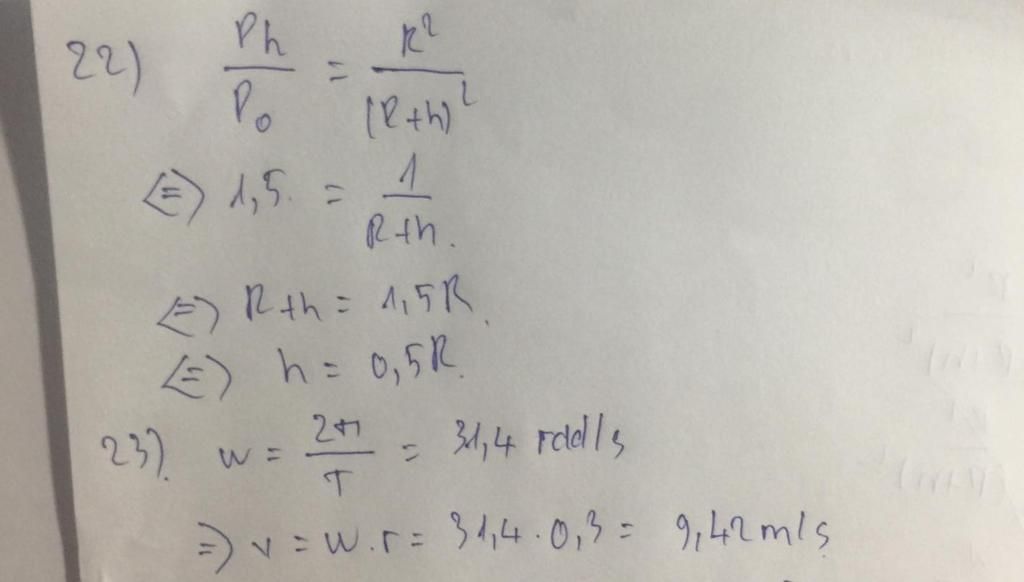 22) Ph/Po = R²/(R+h)²
⇔ 1,5. = 1/R+h.
⇔ R+h = 1,5R.
⇔ h = 0,5R.
23). w = 2π/T = 31,4 rad/s
⇒ v = w.r = 31,4 . 0,3 = 9,42 m/s